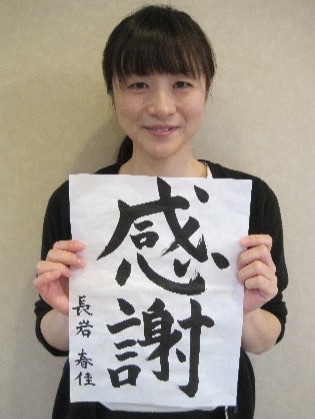 感謝
長岩 春佳